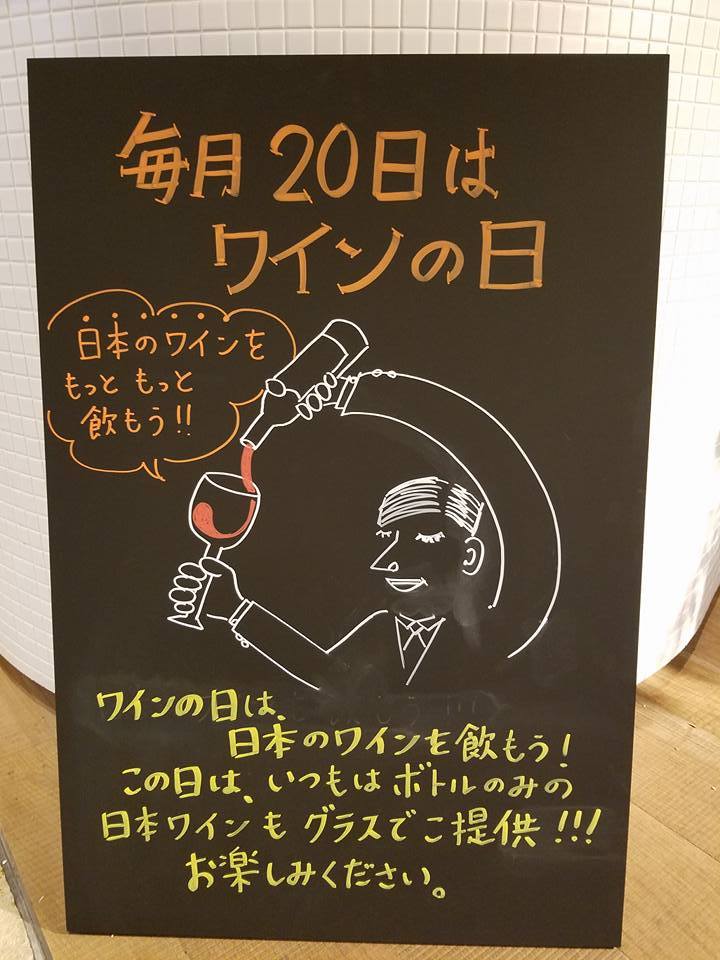 毎月20日は
ワインの日
日本のワインを
もっと もっと
飲もう!!
ワインの日は、
日本のワインを飲もう!
この日は、いつもはボトルのみの
日本ワインも グラスでご提供!!!
お楽しみください。